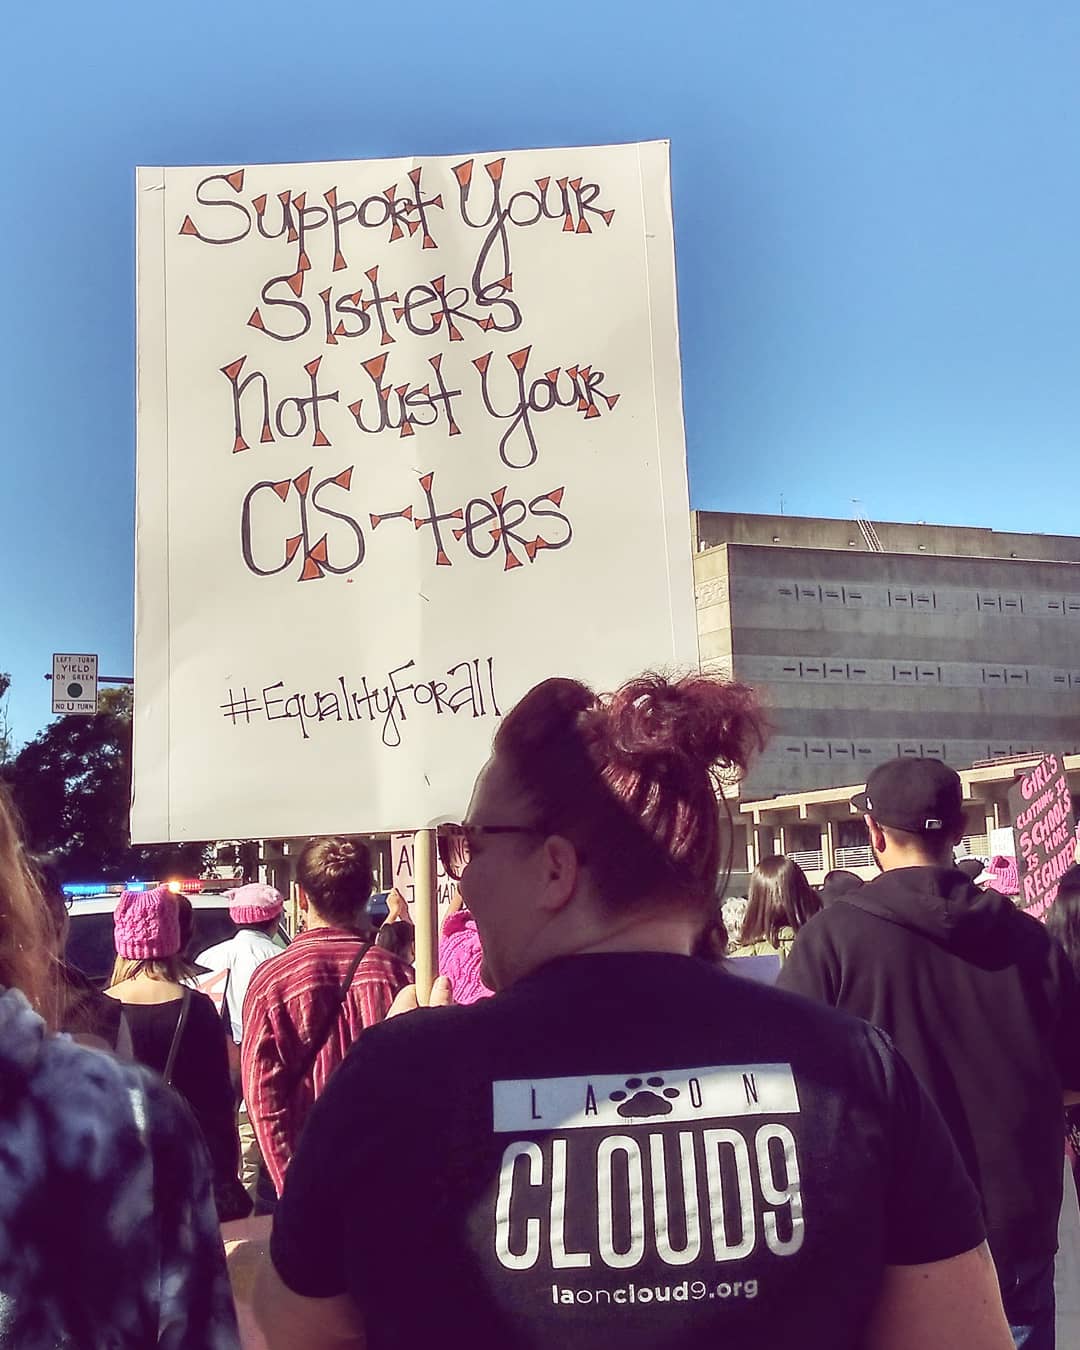 Support Your
Sisters
Not Just Your
CIS-ters
#EqualityForall
LEFT TURN
YIELD
ON GREEN
NO U TURN
GIRL'S
CLOTHING IN
SCHOOLS
IS MORE
REGULATED
LA ON
CLOUD9
laoncloud9.org